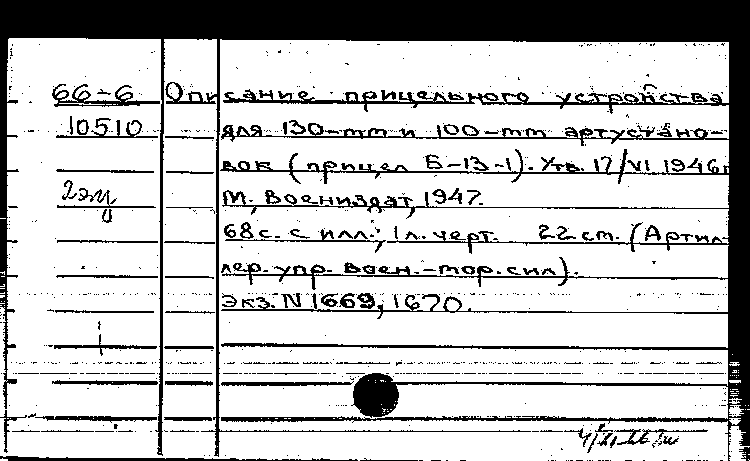 66-6 Описание прицельного устройства
10510 для 130-mm и 100-mm артустано-
вок (прицел Б-13-1). Утв. 17/VI 1946г
2 экз М., Воениздат, 1947.
68 с. с илл.; 1 л. черт. 22 cm. (Артил-
лер. упр. воен.-мор. сил).
Экз. N 1669, 1670.